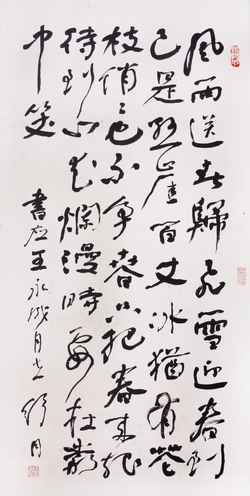 風雨送春歸飛雪迎春到
已是懸崖百丈冰猶有花
枝俏々也不争春只把春來報
待到山花爛漫時她在叢
中笑
書应王永成同志 舒同